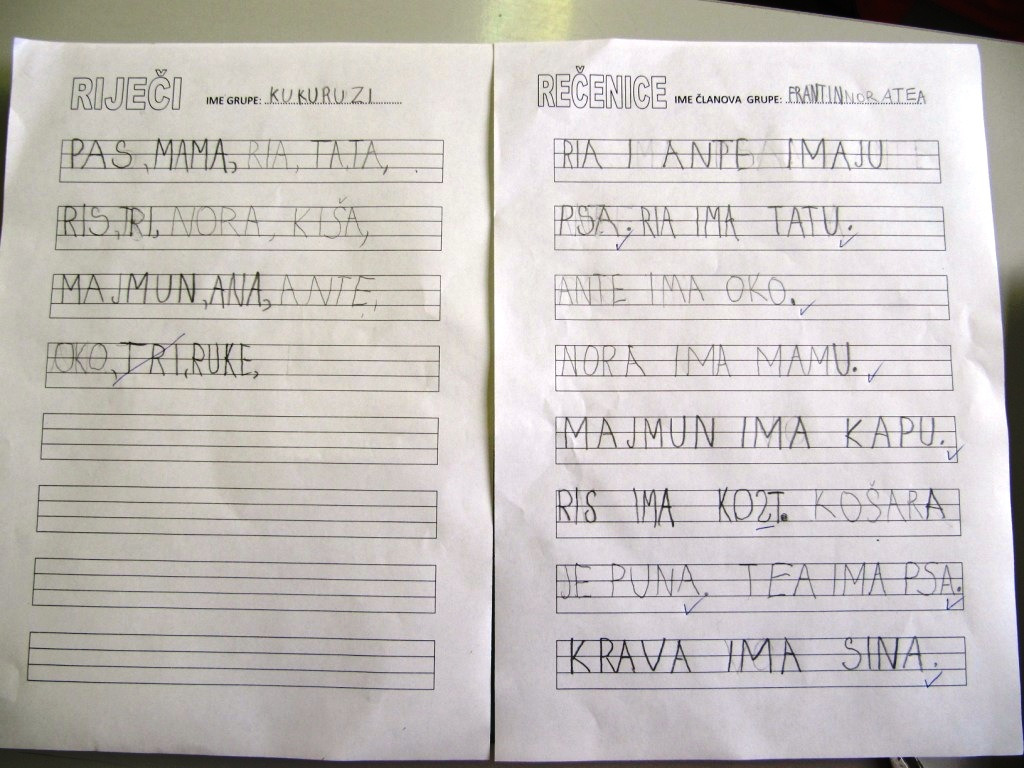 RIJEČI IME GRUPE: KUKURUZI
PAS, MAMA, RIA, TATA,
RIS, TRI, NORA, KIŠA,
MAJMUN, ANA, ANTE,
OKO, TRI, RUKE,
REČENICE IME ČLANOVA GRUPE: FRANTINNORATEA
RIA I ANTE IMAJU
PSA. RIA IMA TATU.
ANTE IMA OKO.
NORA IMA MAMU.
MAJMUN IMA KAPU.
RIS IMA KOST. KOŠARA
JE PUNA. TEA IMA PSA.
KRAVA IMA SINA.